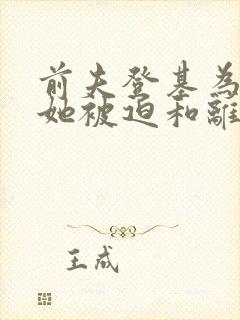 前夫登基為
她被迫和離
王成